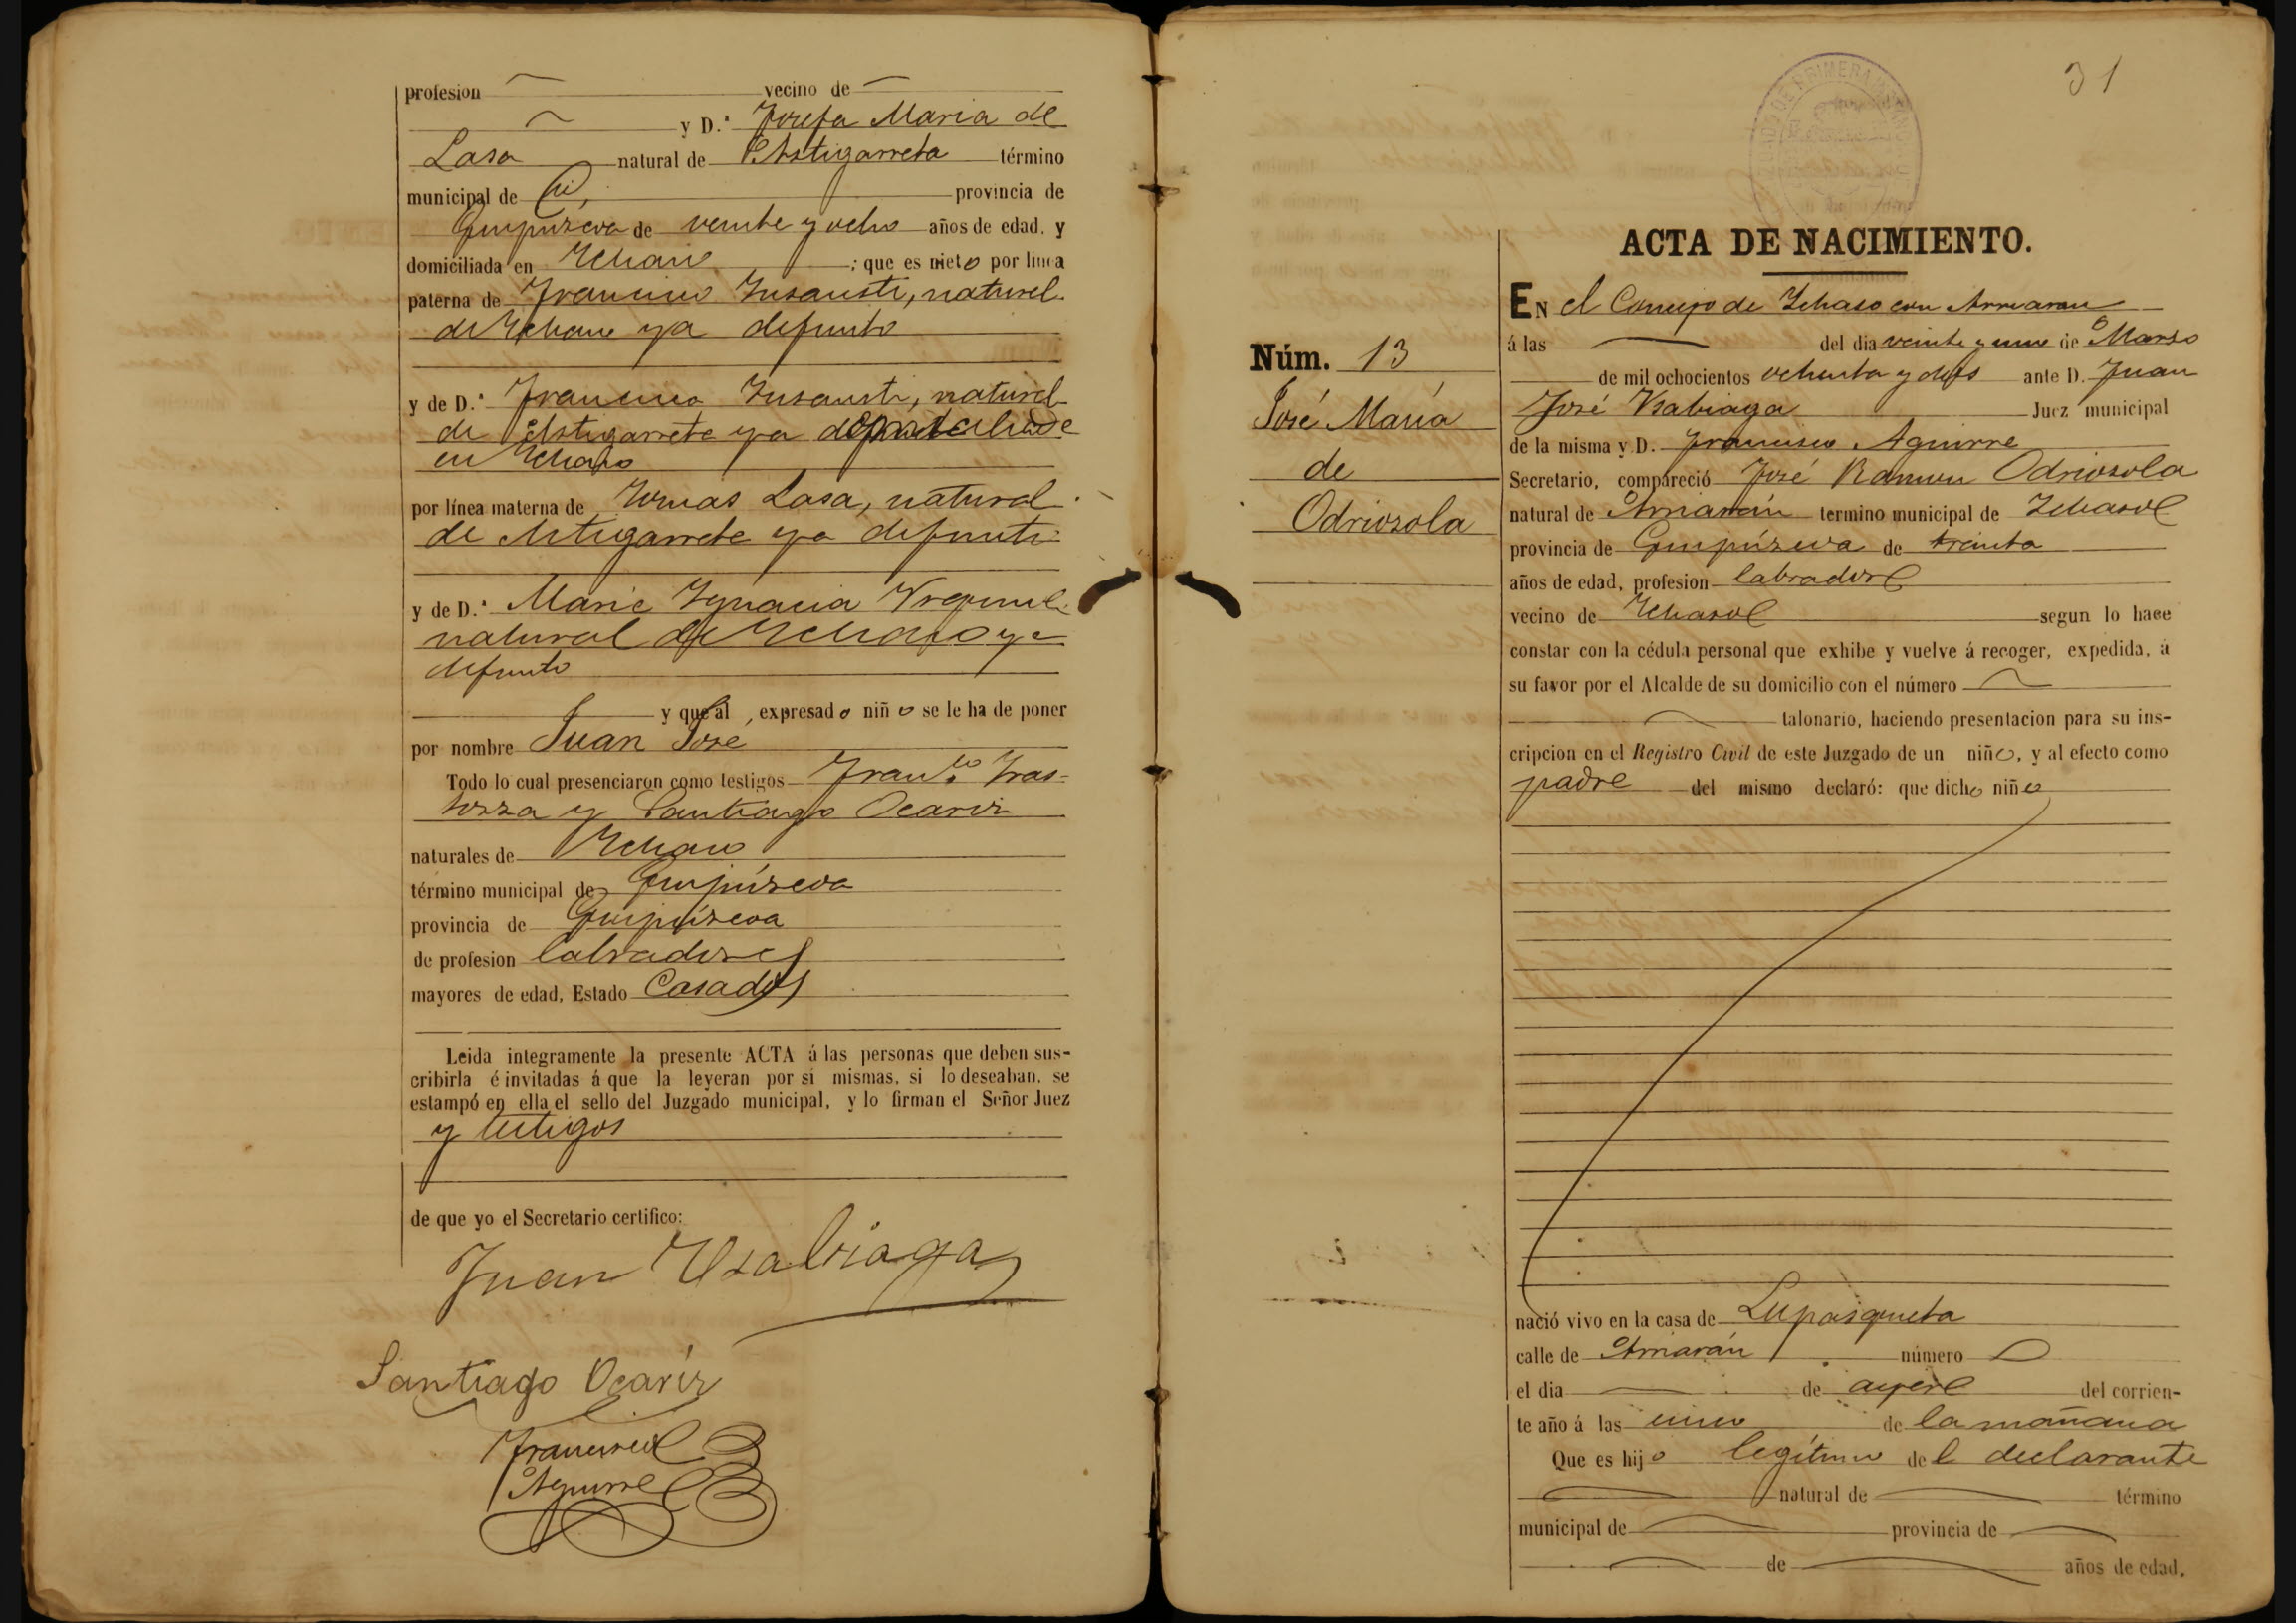 profesion vecino de
y D.ª Josefa Maria de
Lasa natural de Astigarreta término
municipal de provincia de
Guipúzcoa de veinte y ocho años de edad, y
domiciliada en Ichaso ; que es nieto por línea
paterna de Francisco Insausti, natural
de Ichaso ya defunto
y de D.ª Francisca Insausti, natural
de Astigarreta ya
en Ichaso
por línea materna de Tomas Lasa, natural
de Astigarreta ya defunto
y de D.ª Maria Ygnacia
natural de Ichaso ya
defunto
y que al expresado niño se le ha de poner
por nombre Juan José
Todo lo cual presenciaron como testigos Fran.co Iras-
torza y Santiago Ocariz
naturales de Ichaso
término municipal de Guipúzcoa
provincia de Guipúzcoa
de profesion labradores
mayores de edad, Estado Casados
Leida integramente la presente ACTA á las personas que deben sus-
cribirla é invitadas á que la leyeran por sí mismas, si lo deseaban, se
estampó en ella el sello del Juzgado municipal, y lo firman el Señor Juez
y testigos
de que yo el Secretario certifico:
Juan Usabiaga
Santiago Ocaríz
Francisco
Aguirre
31
ACTA DE NACIMIENTO.
Núm. 13
José María
de
Odriozola
EN el Concejo de Ichaso con Arriaran
á las del dia veinte y uno de Marzo
de mil ochocientos ochenta y dos ante D. Juan
José Usabiaga Juez municipal
de la misma y D. Francisco Aguirre
Secretario, compareció José Ramon Odriozola
natural de Arriarán termino municipal de Ichaso
provincia de Guipúzcoa de treinta
años de edad, profesion labrador
vecino de Ichaso segun lo hace
constar con la cédula personal que exhibe y vuelve á recoger, expedida, á
su favor por el Alcalde de su domicilio con el número
talonario, haciendo presentacion para su ins-
cripcion en el Registro Civil de este Juzgado de un niño, y al efecto como
padre del mismo declaró: que dicho niño
nació vivo en la casa de Lupasqueta
calle de Arriarán número
el dia de ayer del corrien-
te año á las cinco de la mañana
Que es hijo legítimo del declarante
natural de término
municipal de provincia de
de años de edad.